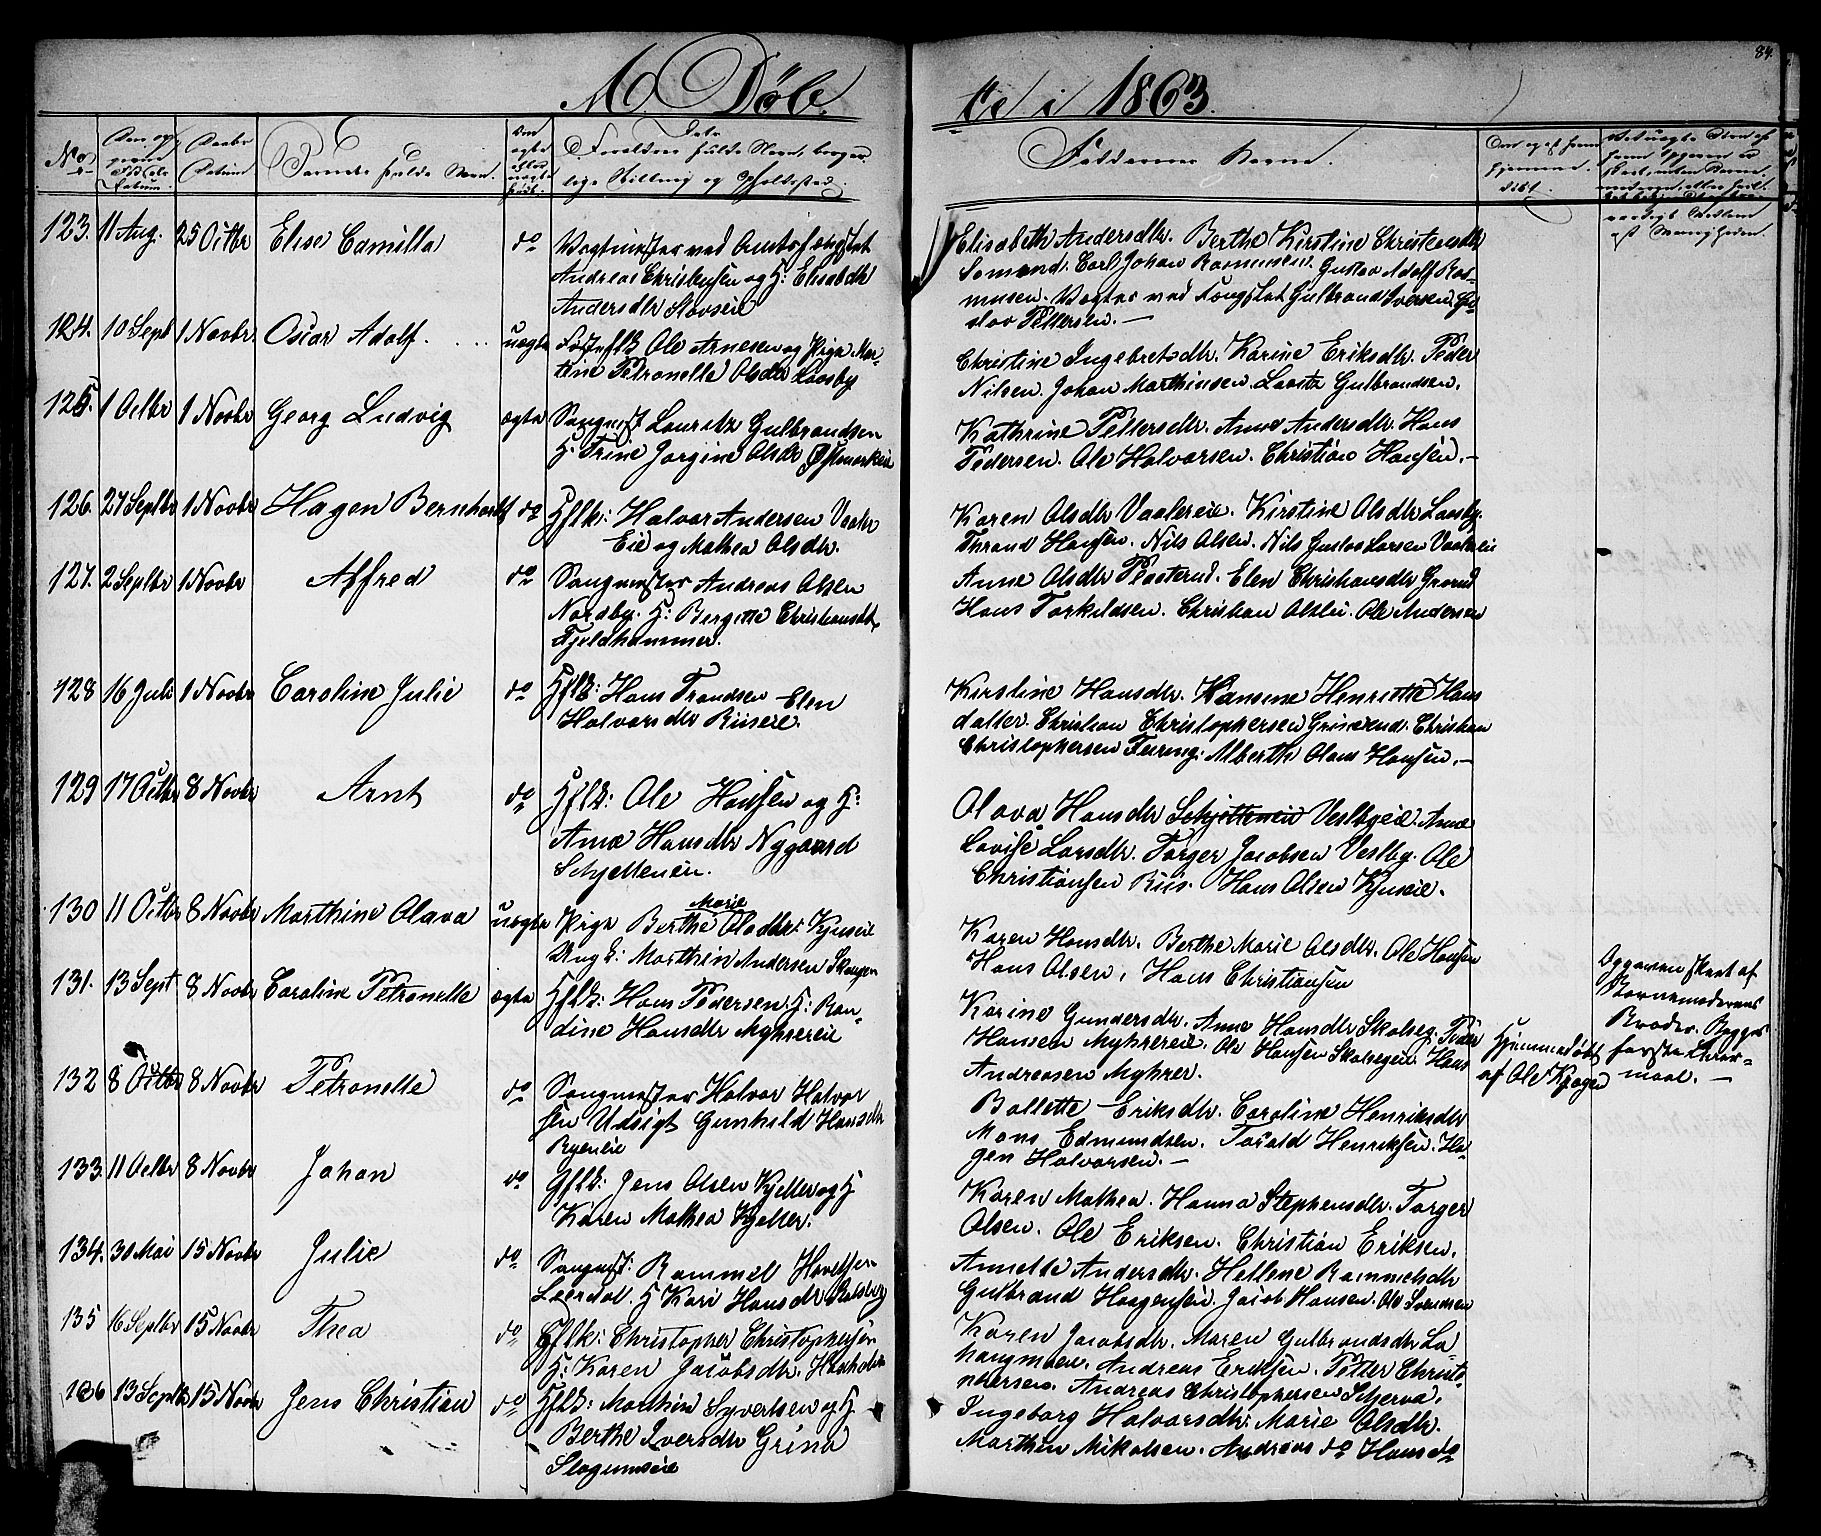 84.
M Döbte i 1863.
No
Barnets fulde Navn.
Foraldres fulde Navn, borger-
lige Stilling og Opholdssted.
Faddernes Navne.
123. 11 Aug. 25 Octbr Elise Camilla do Vogtmester ved Amtsfængslet
Andreas Christensen og H: Elisabeth
Andersdtr Stovseie
Elisabeth Andersdtr. Berthe Kirstine Christensdtr
Semand. Carl Johan Rasmusen. Gustav Adolf Ras-
musen. Vogter ved Fængslet Gulbrand Iversen. Gu-
stav Pettersen. —
124. 10 Septb 1 Novbr. Oscar Adolf. uægte Ole Arnesen og Pige Mar-
tine Petronelle Olsdtr Loosby
Christine Ingebretsdtr. Karine Eriksdtr. Peder
Nilsen. Johan Marthinsen. Lauritz Gulbrandsen.
125. 1 Octbr 1 Novbr Georg Ludvig ægte Sougmst Lauritz Gulbrandsen
H: Trine Jorgine Olsdr Østmarkeie
Kathrine Pettersdtr. Anne Andersdtr. Hans
Pedersen. Ole Halvorsen. Christian Hansen. —
126. 27 Septbr 1 Novbr Hagen Bernhardt do Hflk: Halvor Andersen Vaaler
Eie og Mathea Olsdtr.
Karen Olsdtr Vaalereie. Kirstine Olsdtr Loosby.
Thrand Hansen. Nils Olsen. Nils Gustav Larsen Vaalereie
127. 2 Septbr 1 Novbr Alfred do Sougmester Andreas Olsen
Nordby. H: Bergitte Christiansdtr
Fjeldhammer.
Anne Olsdtr. Elen Christiansdtr
Hans Torkildsen. Christian Olsen. Ole Andersen
128 16 Juli 1 Novbr Caroline Julie do Hflk: Hans Trondsen Elen
Halvorsdtr Riiseie.
Kirstine Hansdtr. Hansine Henriette Hans
datter. Christian Christophersen. Christian
Christophersen Feiring. Alberth Olaus Hansen. —
129 17 Octbr 8 Novbr Arnt do Hflk: Ole Hansen og H:
Anne Hansdtr Nygaard
Schjetteneie.
Olava Hansdtr Schjetteneie Vestbyeie. Anne
Lovise Larsdtr. Torger Jacobsen Vestby. Ole
Christiansen Riis. Hans Olsen Kjuseie.
130 11 Octbr 8 Novbr Marthine Olava uægte Pige Berthe Marie Olsdtr: Kjuseie
Ungk: Marthin Andersen Skougen
Karen Hansdtr. Berthe Marie Olsdtr. Ole Hansen
Hans Olsen. Hans Christiansen
131. 13 Sept 8 Novbr Caroline Petronelle ægte Hflk: Hans Pedersen. H: Ran-
dine Hansdtr Myhrereie
Karine Gundersdtr. Anne Hansdtr Skolseg. Peder
Hansen Myhrereie. Ole Hansen Skolsegeie. Hans
Andreasen Myhrer.
Opgaven skeet af
Barnemoderens
Broder. Begges
første Leier-
maal. —
132 8 Octbr 8 Novbr Petronelle do Sougmester Halvor Halvor
sen Udsigt Gunhild Hansdtr
Ryeneie
Bollette Eriksdtr. Caroline Henriksdtr
Mons Edmundsen. Torald Henriksen. Ha-
gen Halvorsen. —
Hjemmedøbt
af Ole Kroger
133. 11 Octbr 8 Novbr Johan do Gflk: Jens Olsen Kjeller og H
Karen Mathea Kjeller.
Karen Mathea. Hanna Stephensdtr. Torger
Olsen. Ole Eriksen. Christian Eriksen.
134. 30 Mai 15 Novbr Julie do Sougmst: Rommel
Leerdal. H Kari Hansdtr
Annette Andersdtr. Hellene Rommelsdtr
Gulbrand Haagensen. Jacob Hansen. Ole Svendsen
135 16 Septbr 15 Novbr Thea do Gflk: Christopher Christophersen
H: Karen Jacobsdtr.
Karen Jacobsdtr. Maren Gulbrandsdtr La
haugmoen. Andreas Eriksen. Petter Christo-
phersen. Andreas Christophersen Scherva.
136 13 Septb 15 Novbr Jens Christian do Hflk: Marthin Syvertsen og H
Berthe Iversdtr Grina
Slogumseie
Ingeborg Halvorsdtr. Marie Olsdtr.
Marthin Mikalsen. Andreas do Hans do